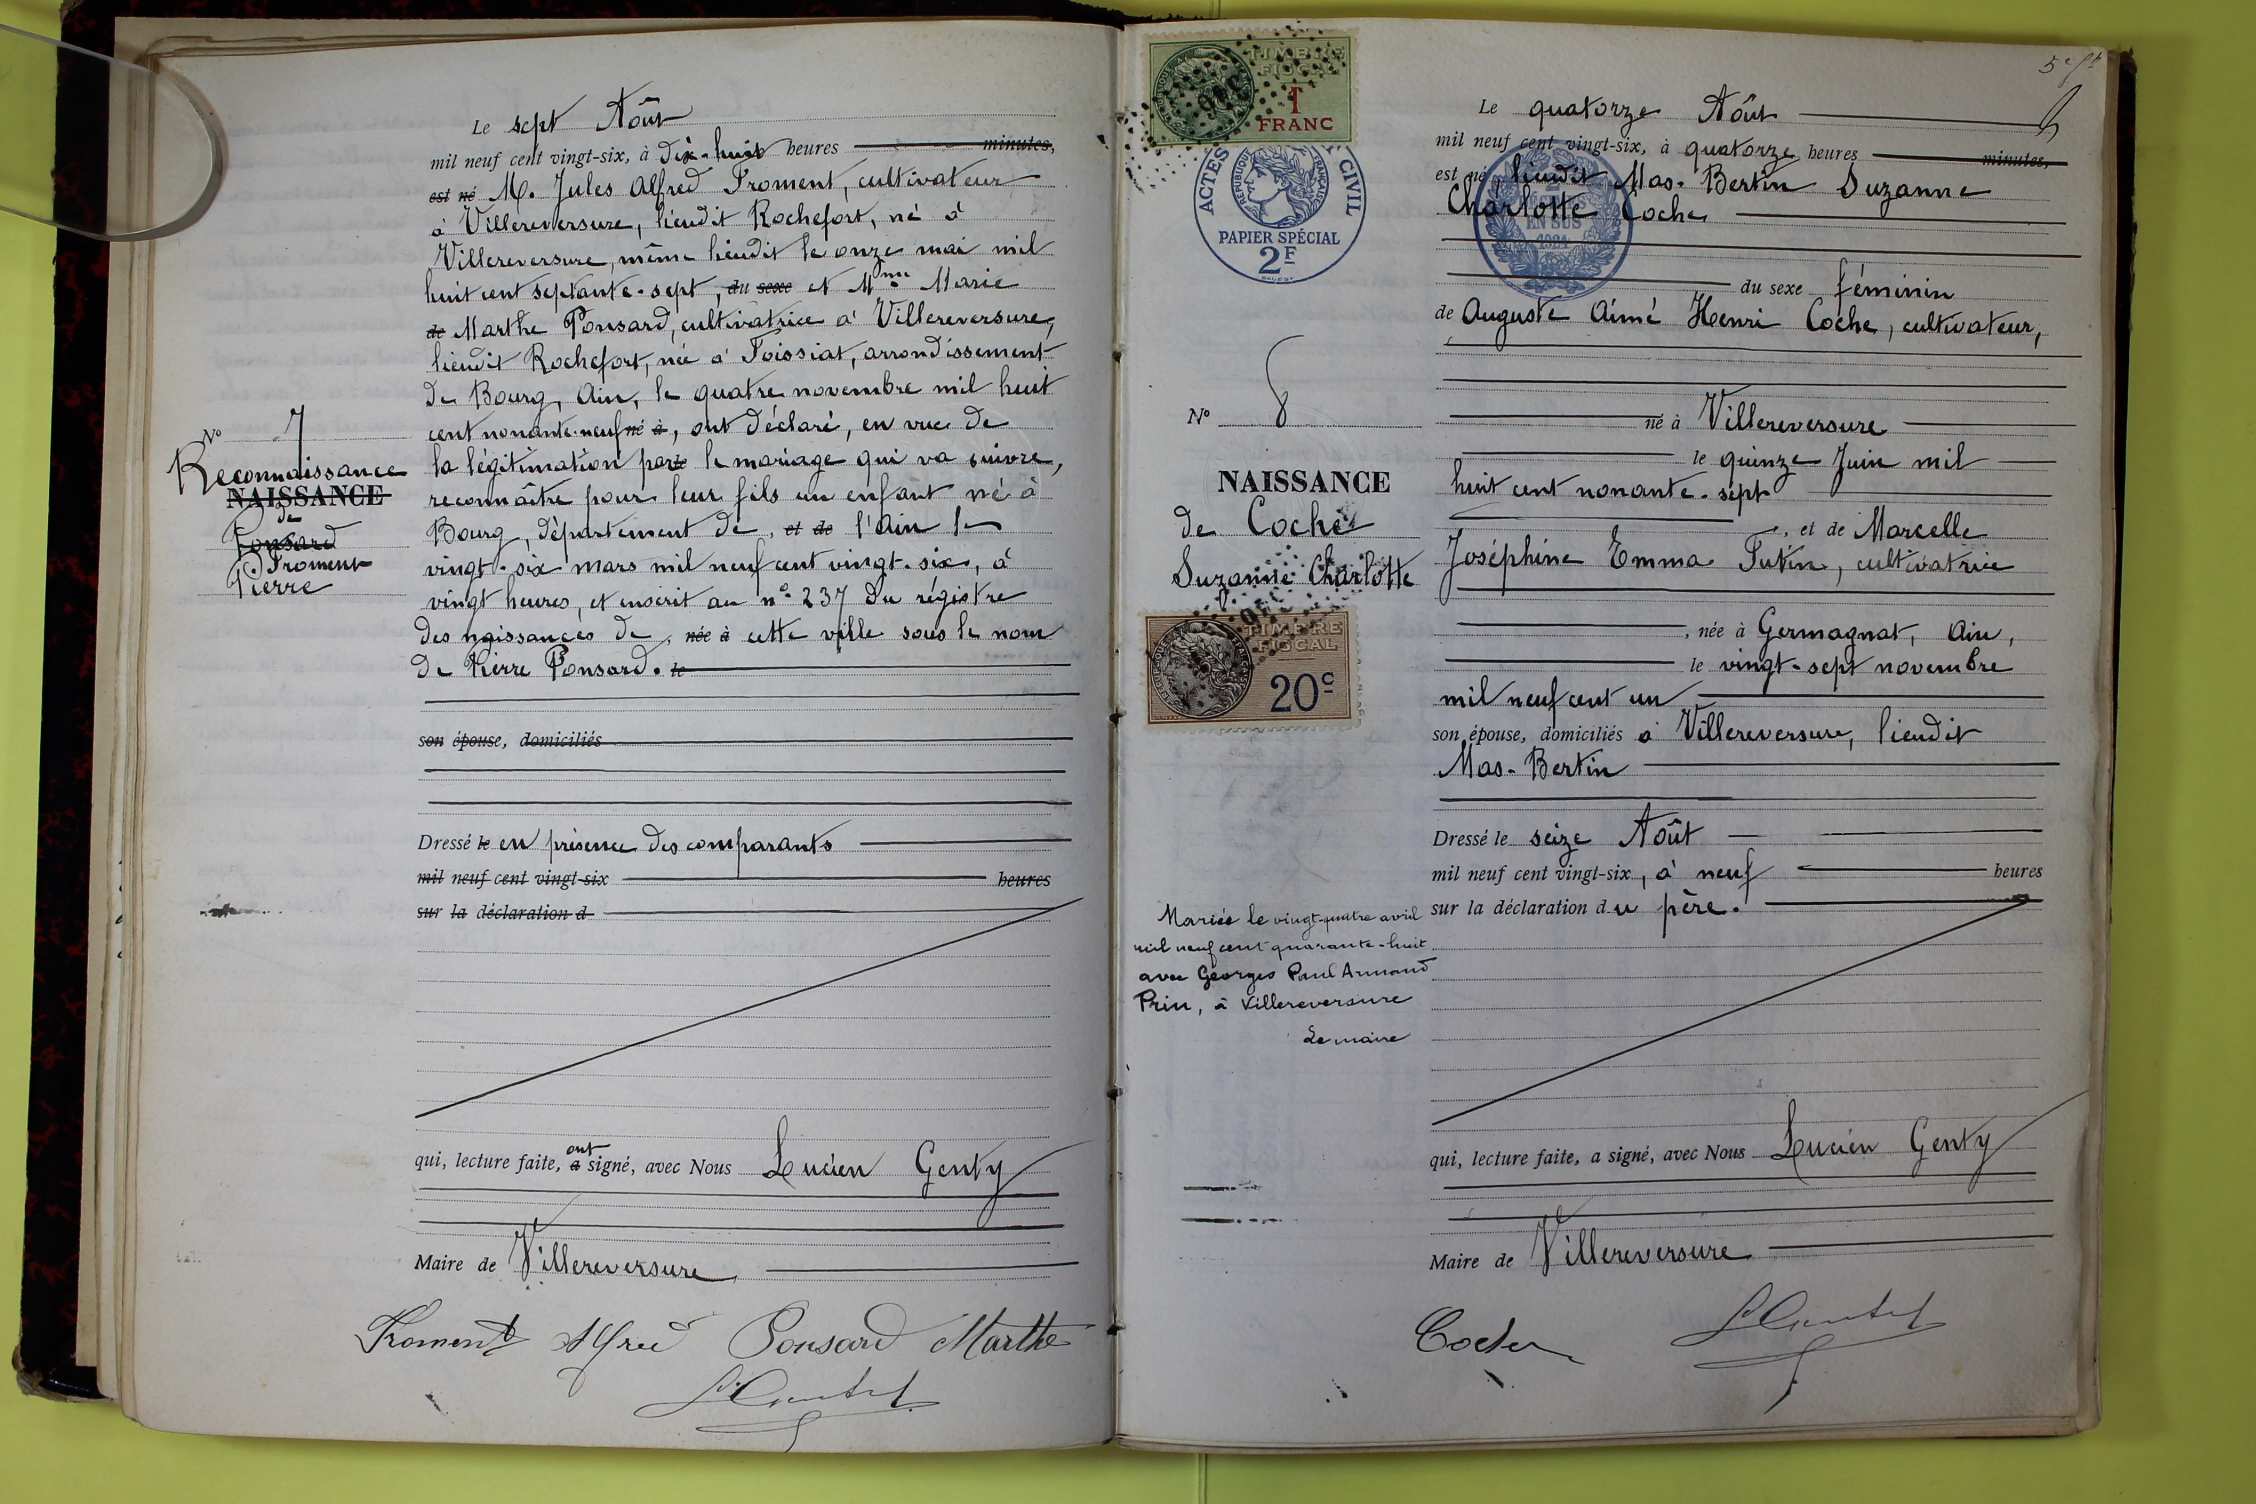 N° 7
Reconnaissance
NAISSANCE
de
Ponsard
Froment
Pierre
Le sept Août
mil neuf cent vingt-six, à dix-huit heures minutes,
est né M. Jules Alfred Froment, cultivateur
à Villereversure, lieudit Rochefort, né à
Villereversure, même lieudit le onze mai mil
huit cent septante-sept, du sexe et Mme Marie
de Marthe Ponsard, cultivatrice à Villereversure,
lieudit Rochefort, née à Foissiat, arrondissement
de Bourg, Ain, le quatre novembre mil huit
cent nonante-neuf né à, ont déclaré, en vue de
la légitimation par le le mariage qui va suivre,
reconnaître pour leur fils un enfant né à
Bourg, département de, et de l'Ain le
vingt-six mars mil neuf cent vingt-six, à
vingt heures, et inscrit au n° 237 du régistre
des naissances de, née à cette ville sous le nom
de Pierre Ponsard. le
son épouse, domiciliés
Dressé le en présence des comparants
mil neuf cent vingt-six heures
sur la déclaration d
qui, lecture faite, a ont signé, avec Nous Lucien Genty
Maire de Villereversure
Froment Alfred Ponsard Marthe
5e ft
TIMBRE
FISCAL
1
FRANC
ACTES CIVIL
RÉPUBLIQUE FRANÇAISE
PAPIER SPÉCIAL
2F
EN SUS
N° 8
NAISSANCE
de Coche
Suzanne Charlotte
TIMBRE
FISCAL
20c
Mariée le vingt-quatre avril
mil neuf cent quarante-huit
avec Georges Paul Armand
Prin, à Villereversure
Le maire
Le quatorze Août
mil neuf cent vingt-six, à quatorze heures minutes,
est né lieudit Mas-Bertin Suzanne
Charlotte Coche
du sexe féminin
de Auguste Aimé Henri Coche, cultivateur,
né à Villereversure
le quinze Juin mil
huit cent nonante-sept
, et de Marcelle
Joséphine Emma Futin, cultivatrice
, née à Germagnat, Ain,
le vingt-sept novembre
mil neuf cent un
son épouse, domiciliés à Villereversure, lieudit
Mas-Bertin
Dressé le seize Août
mil neuf cent vingt-six, à neuf heures
sur la déclaration du père.
qui, lecture faite, a signé, avec Nous Lucien Genty
Maire de Villereversure
Coche